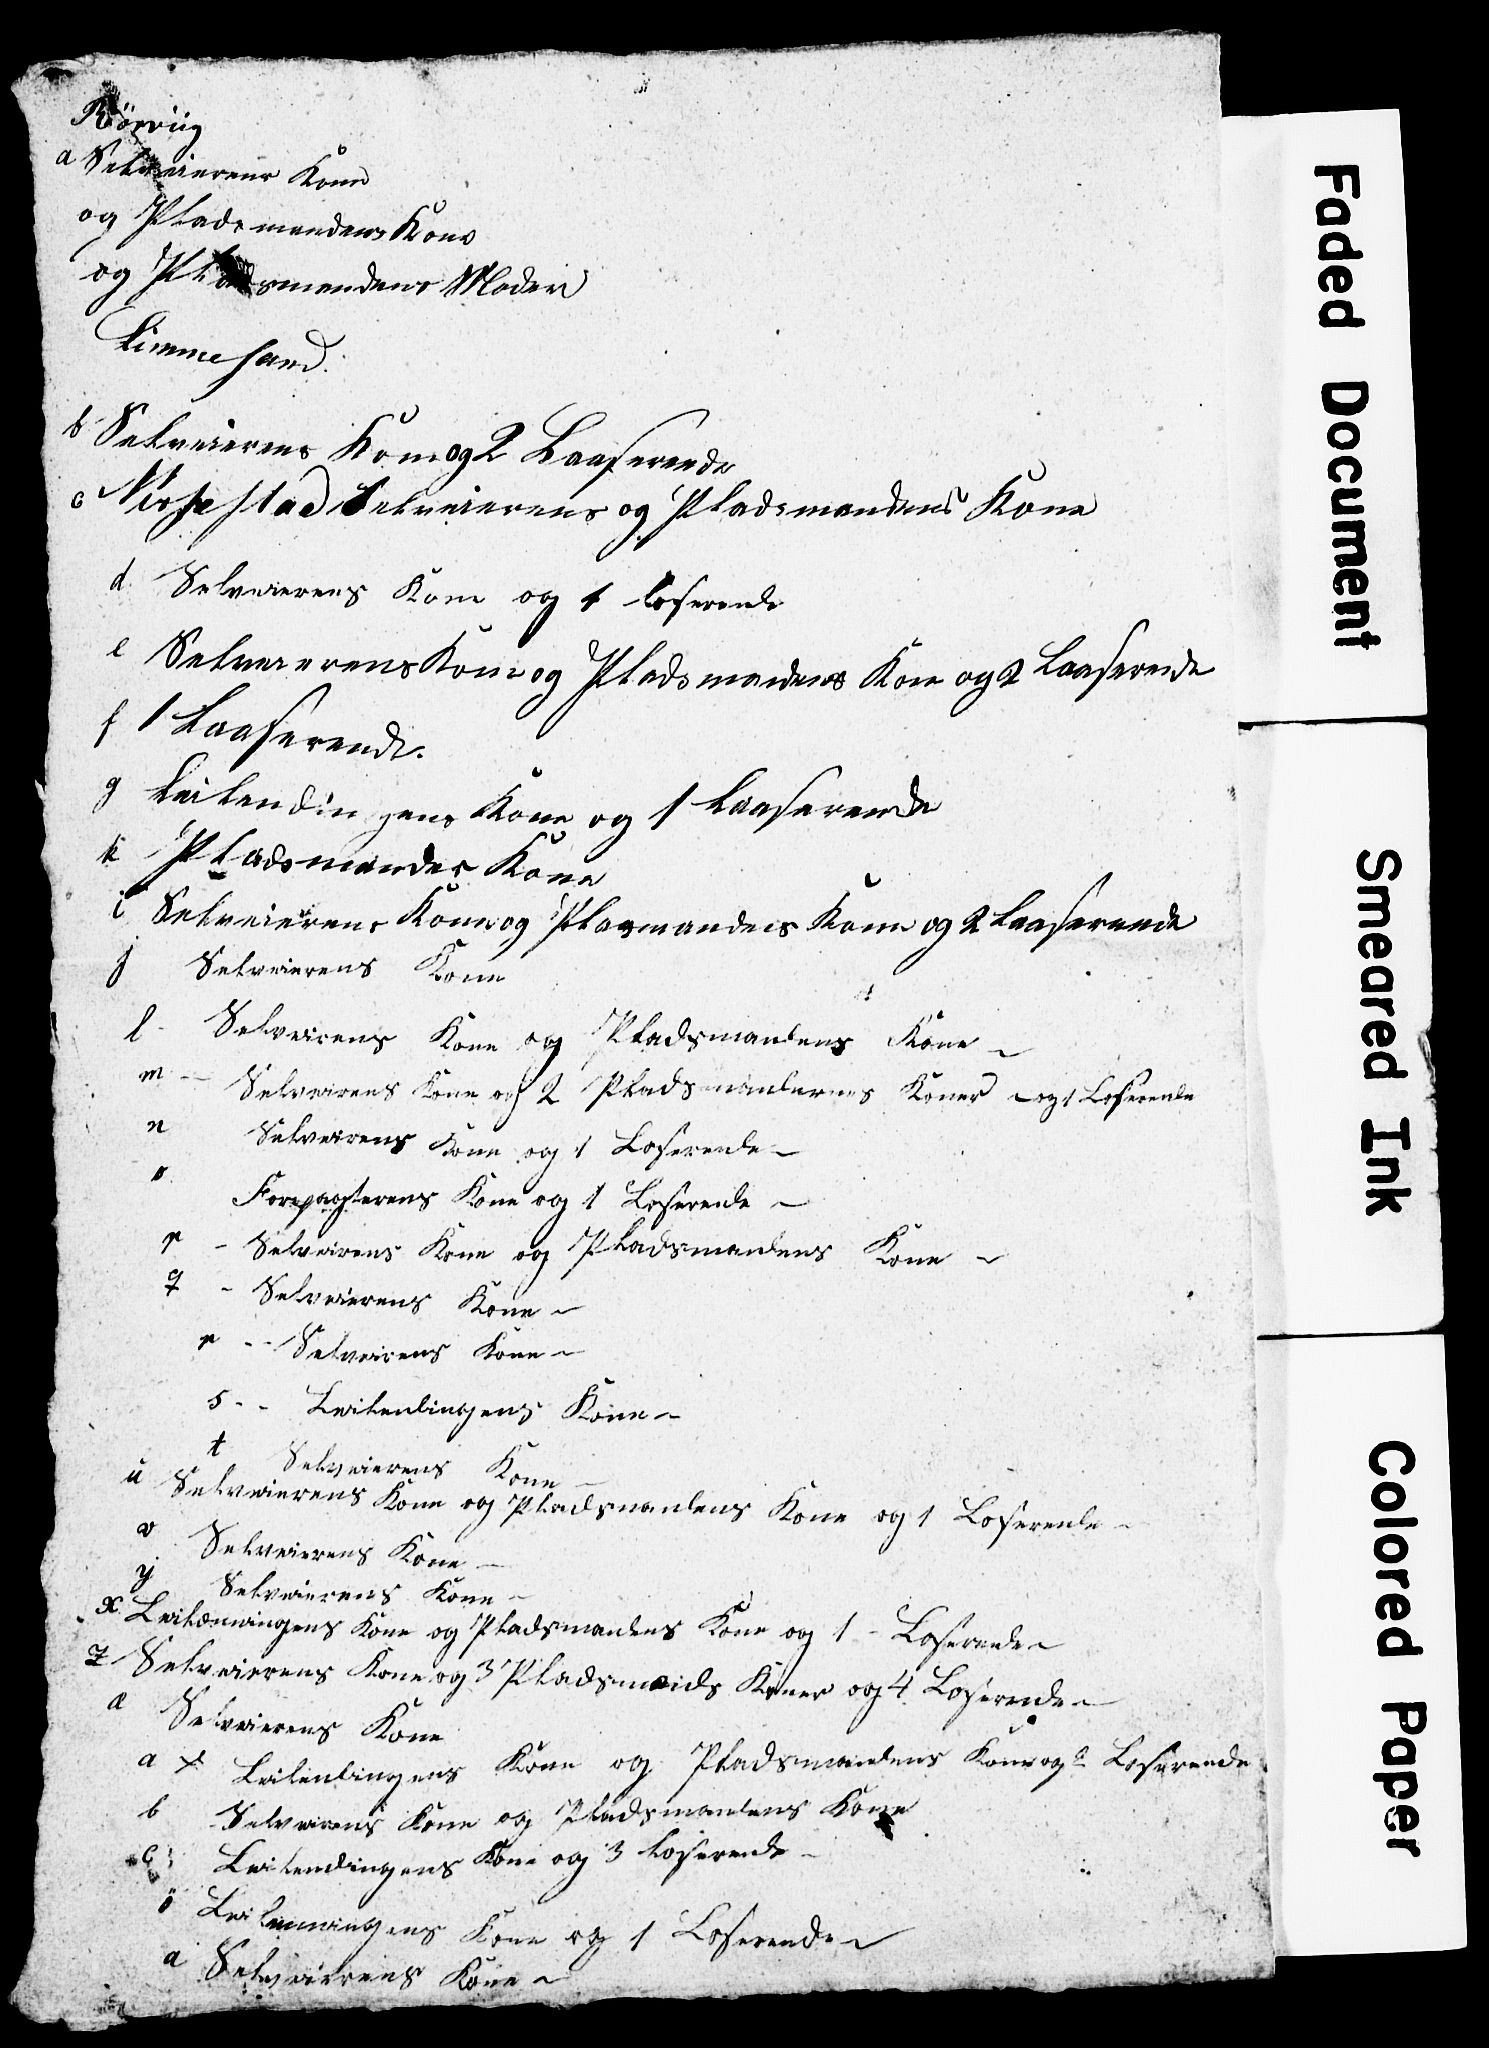 Rörviig
a Selveierens Kone
og Pladsmandens Kone
og Pladsmandens Moder
Timmesand.
b Selveierens Kone og 2 Laaserende
c Selveierens og Pladsmandens Kone
d Selveierens Kone og 1 loserende
e Selveierens Kone og Pladsmandens Kone og 2 Laaserende
f 1 Laaserende.
g Leilendingens Kone og 1 Laaserende
k Pladsmandes Kone
i Selveierens Kone og Plasmandens Kone og 2 Laaserende
j Selveierens Kone
l - Selveirens Kone og Pladsmandens Kone ~
m -- Selveirens Kone og 2 Pladsmandernes Koner og 1 Loserende
n Selveirens Kone og 1 Loserende ~
o Forpagterens Kone og 1 Loserende ~
p - Selveirens Kone og Pladsmandens Kone ~
q - Selveierens Kone ~
r -- Selveirens Kone ~
s -- Leilendingens Kone ~
t Selveierens Kone ~
u Selveierens Kone og Pladsmandens Kone og 1 Loserende ~
v Selveierens Kone ~
y Selveierens Kone ~
x Leilænningens Kone og Pladsmandens Kone og 1 - Loserende ~
z Selveierens Kone og 3 Pladsmends Koner og 4 Loserende ~
a Selveierens Kone
a x Leilendingens Kone og Pladsmandens Kone og Loserende
b Selveirens Kone og Pladsmandens Kone
c Leilendingens Kone og 3 loserende -
ö Leilenningens Kone og 1 Loserende ~
a Selveierens Kone ~
Faded Document
Smeared Ink
Colored Paper